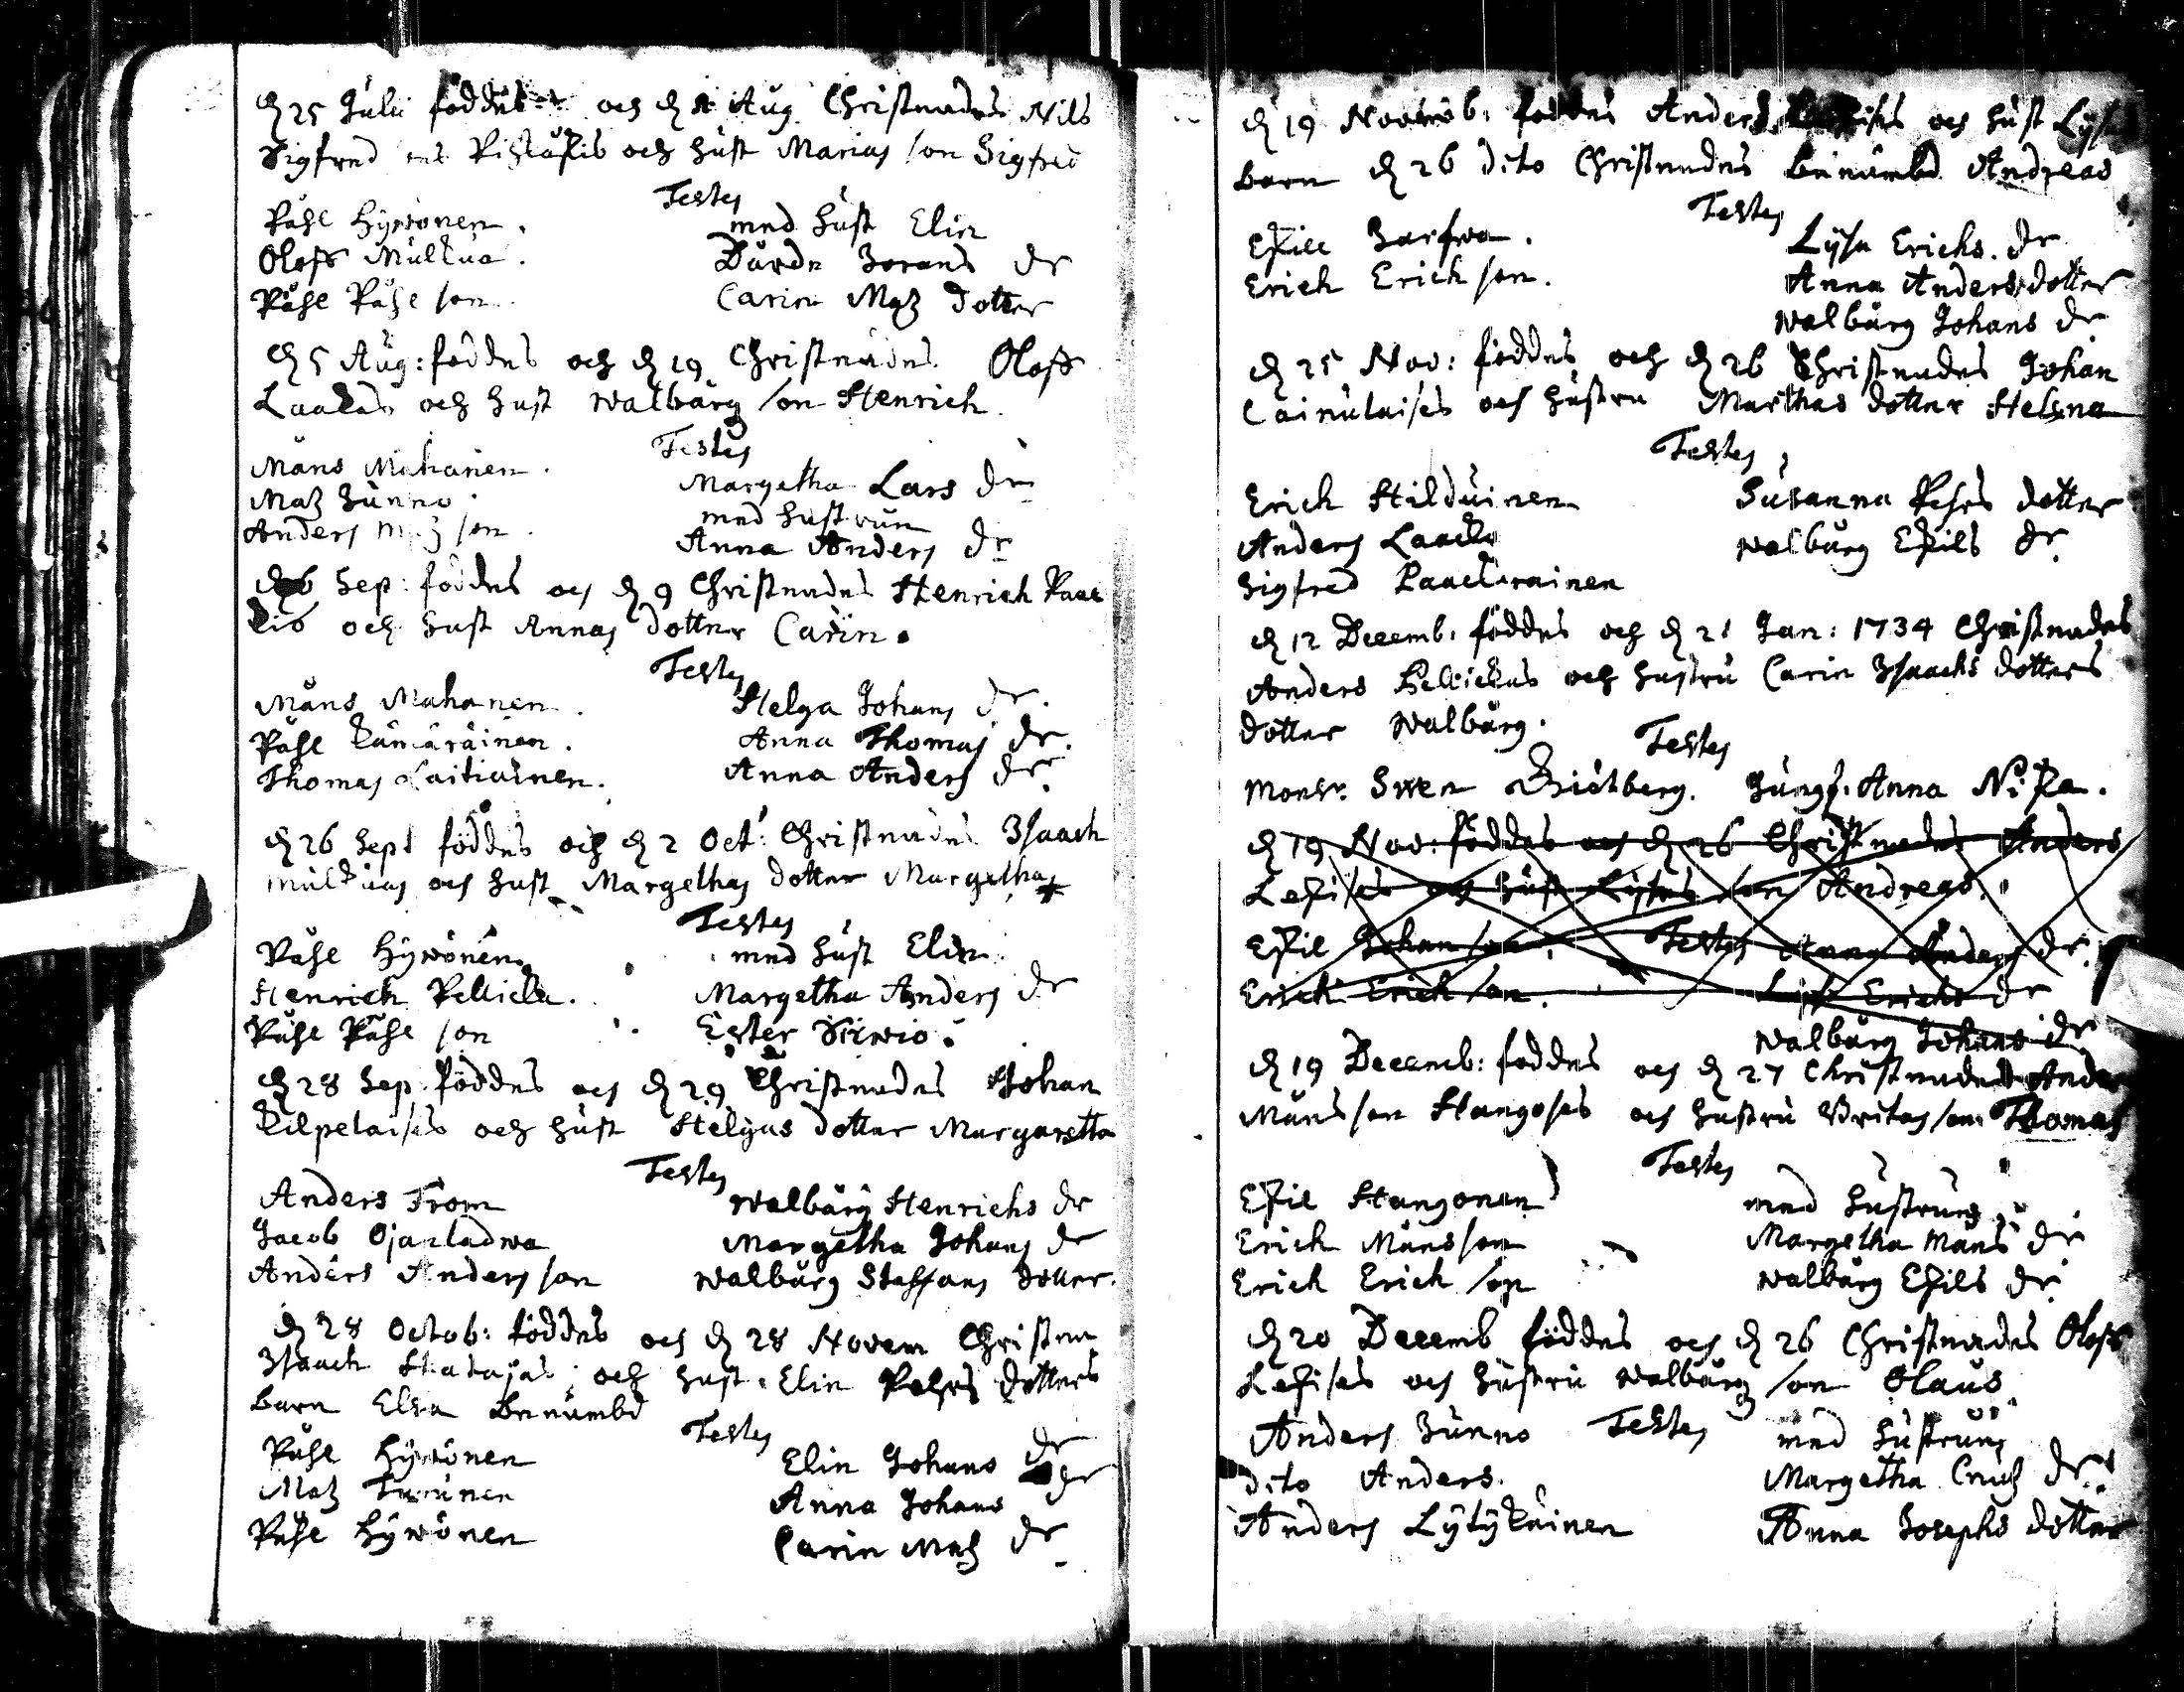 d 25 Julii föddes och d 1 Aug Christnades Nils
Sigfred och hust Marias son Sigfred
Testes
Påhl Hyvönen. med hust Elin
Oloff Mulkua. Dårde Jorans dr
Påhl Påhl son. Carin Matz dotter
d 5 Aug: föddes och d 19 Christnades Oloff
Laakas och hust walbårg son Henrich.
Testes
Måns Mahanen. Margetha Lars dr
Matz Junno. med hustrun
Anders Matz son. Anna Anders dr
d 6 Sep: föddes och d 9 Christnades Henrich Paac
kis och hust Annas dotter Carin.
Testes
Måns Mahanen. Helga Johans dr.
Påhl Kämäräinen. Anna Thomas dr.
Thomas Laitiainen. Anna Anders dr.
d 26 Sept föddes och d 2 Oct: Christnades Isaach
Mulkuas och hust Margethas dotter Margetha
Testes
Påhl Hywönen. med hust Elin
Henrich Pellicka. Margetha Anders dr
Påhl Påhl son Ester
d 28 Sep. föddes och d 29 Christnades Johan
Kilpelaises och hust Helgas dotter Margaretta
Testes
Anders From walbårg Henrichs dr
Jacob Ojanladwa Margetha Johans dr
Anders Anders son walbårg Staffans dotter.
d 28 Octob: föddes och d 28 Novem Christna
Isaach Hatajas och hust. Elin Pehrs dotters
barn Elsa benämbd
Testes
Påhl Hyvönen Elin Johans dr
Matz Turunen Anna Johans dr
Påhl Hywönen Carin Matz dr
d 19 Novemb: föddes Anders och hust Lysas
barn d 26 dito Christnades benämbd Andreas
Testes
Eskill Lysa Erichs. dr
Erich Erich son. Anna Anders dotter
walbårg Johans dr
d 25 Nov: föddes och d 26 Christnades Johan
Cainulaises och hustru Marthas dotter Helena
Testes
Erich Hilduinen Susanna Pehrs dotter
Anders Laacko walbårg Eskils dr
Sigfred
d 12 Decemb: föddes och d 21 Jan: 1734 Christnades
Anders Pellickas och hustru Carin Isaachs dotters
dotter walbårg.
Testes
Monsr. Swen Jungf. Anna
d 19 Nov: föddes och d 26 Christnades Anders
Leskises och hust Lysas son Andreas.
Eskil Johan son. Testes Anna Anders dr.
Erich Erich son. Lysa Erichs dr
walbårg Johans dr
d 19 Decemb: föddes och d 27 Christnades Anders
Måns son Hangoses och hustru Britas son Thomas
Testes
Eskil Hangonen med hustrun
Erich Måns son Margetha Måns dr
Erich Erich son walbårg Eskils dr
d 20 Decemb föddes och d 26 Christnades Oloff
Leskises och hustru walbårg son Olaus
Anders Junno Testes med hustrun
dito Anders. Margetha dr.
Anders Lytykäinen Anna Josephs dotter